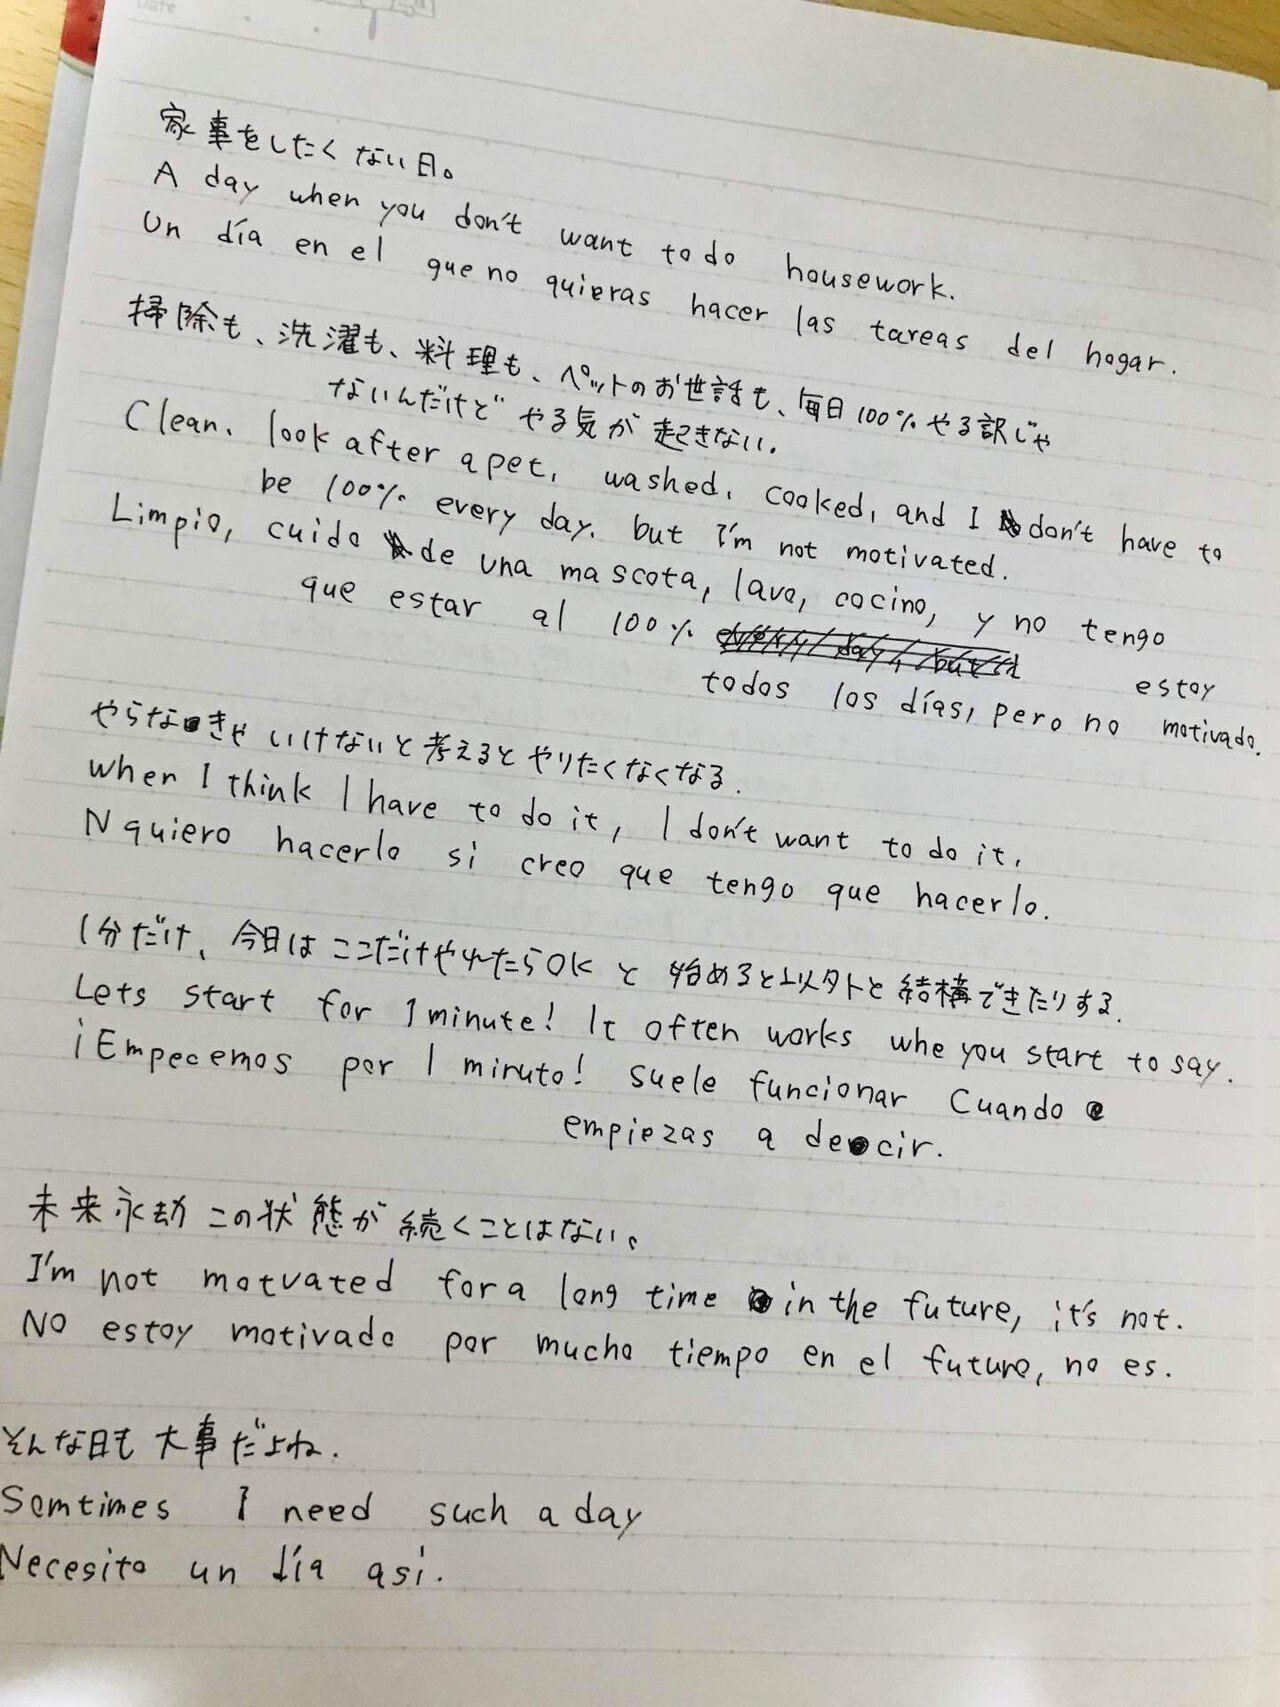 Date
家事をしたくない日。
A day when you don't want to do housework.
Un día en el que no quieras hacer las tareas del hogar.
掃除も、洗濯も、料理も、ペットのお世話も、毎日100%やる訳じゃ
ないんだけどやる気が起きない.
Clean. look after a pet. washed. cooked, and I don't have to
be 100% every day. but I'm not motivated.
Limpio, cuido de una mascota, lavo, cocino, y no tengo
que estar al 100%
todos los días, pero no estoy motivado.
やらなきゃいけないと考えるとやりたくなくなる.
when I think I have to do it, I don't want to do it.
N quiero hacerlo si creo que tengo que hacerlo.
1分だけ、今日はここだけやれたらOKと始めると以外と結構できたりする.
Lets start for 1 minute! It often works whe you start to say.
¡Empecemos por 1 minuto! suele funcionar Cuando
empiezas a decir.
未来永劫この状態が続くことはない。
I'm not motvated for a long time in the future, it's not.
NO estoy motivado por mucho tiempo en el futuro, no es.
そんな日も大事だよね.
Somtimes I need such a day
Necesito un día asi.